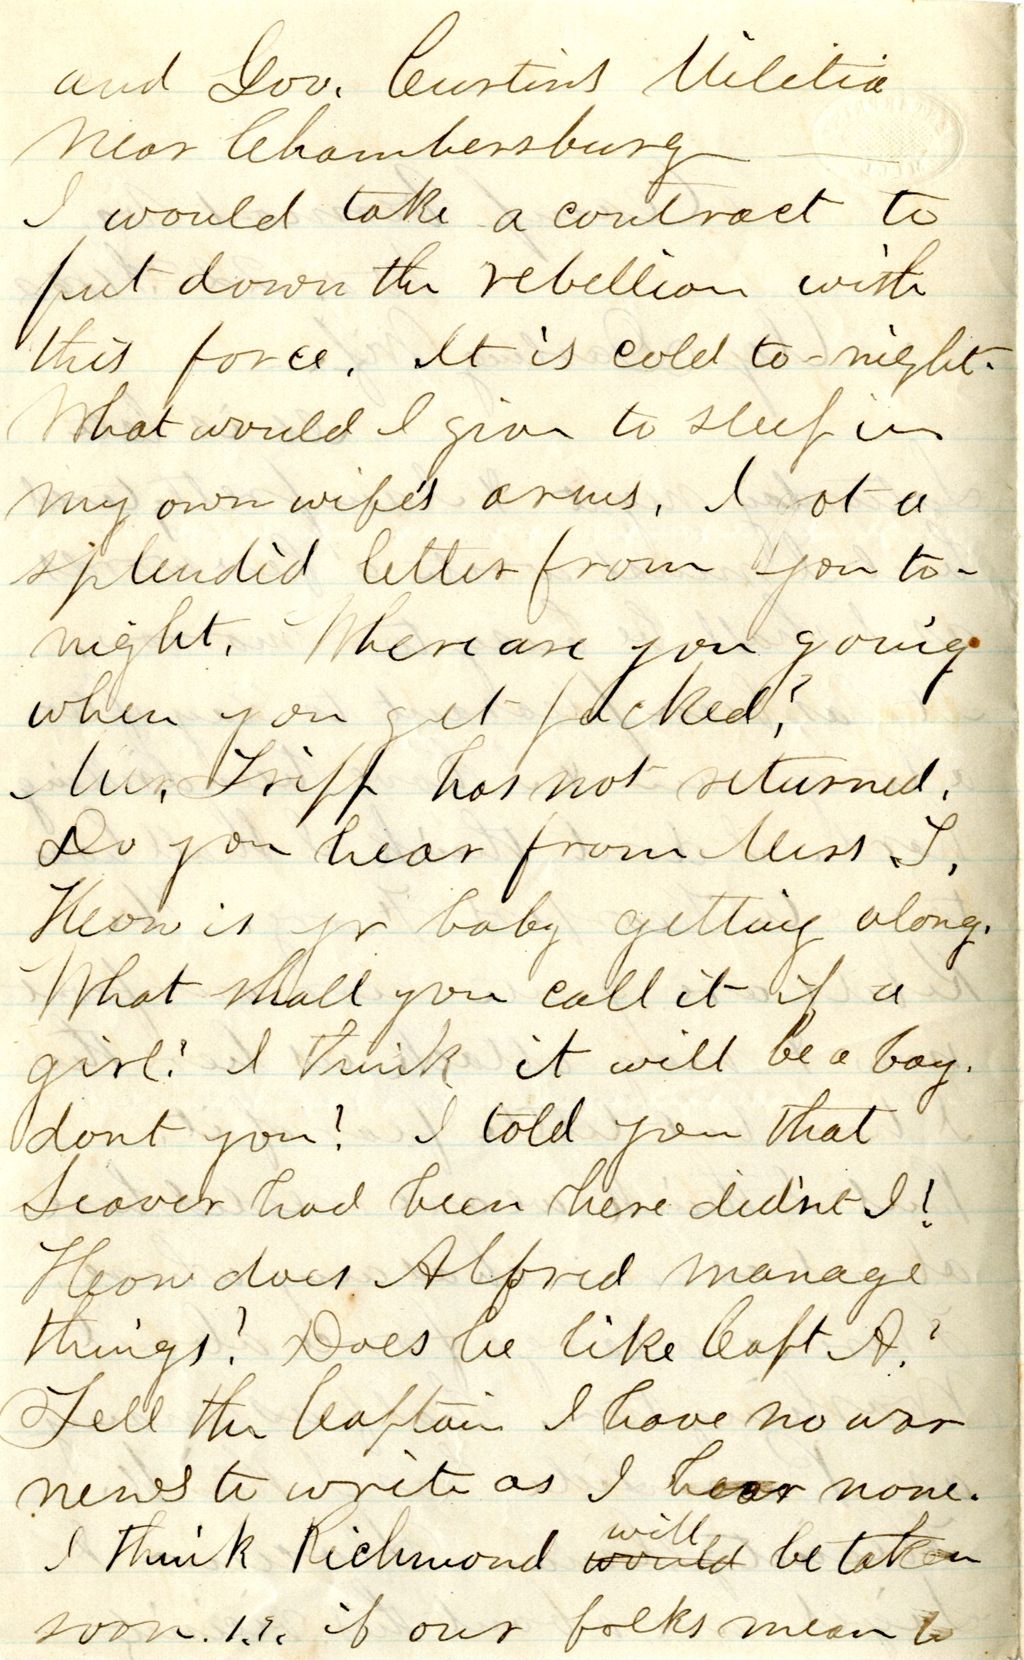 and Gov. Curtins Militia
near Chambersburg
I would take a contract to
put down the rebellion with
this force. It is cold to-night.
What would I give to sleep in
my own wife's arms. I got a
splendid letter from you to-
night. Where are you going
when you get packed?
Mr. Tripp has not returned.
Do you hear from Miss T.
How is yr baby getting along.
What shall you call it if a
girl? I think it will be a boy.
dont you? I told you that
Seaver had been here did'nt I?
How does Alfred manage
things? Does he like Capt A.?
Tell the Captain I have no war
news to write as I hear none.
I think Richmond would will be taken
soon. i.e. if our folks mean to